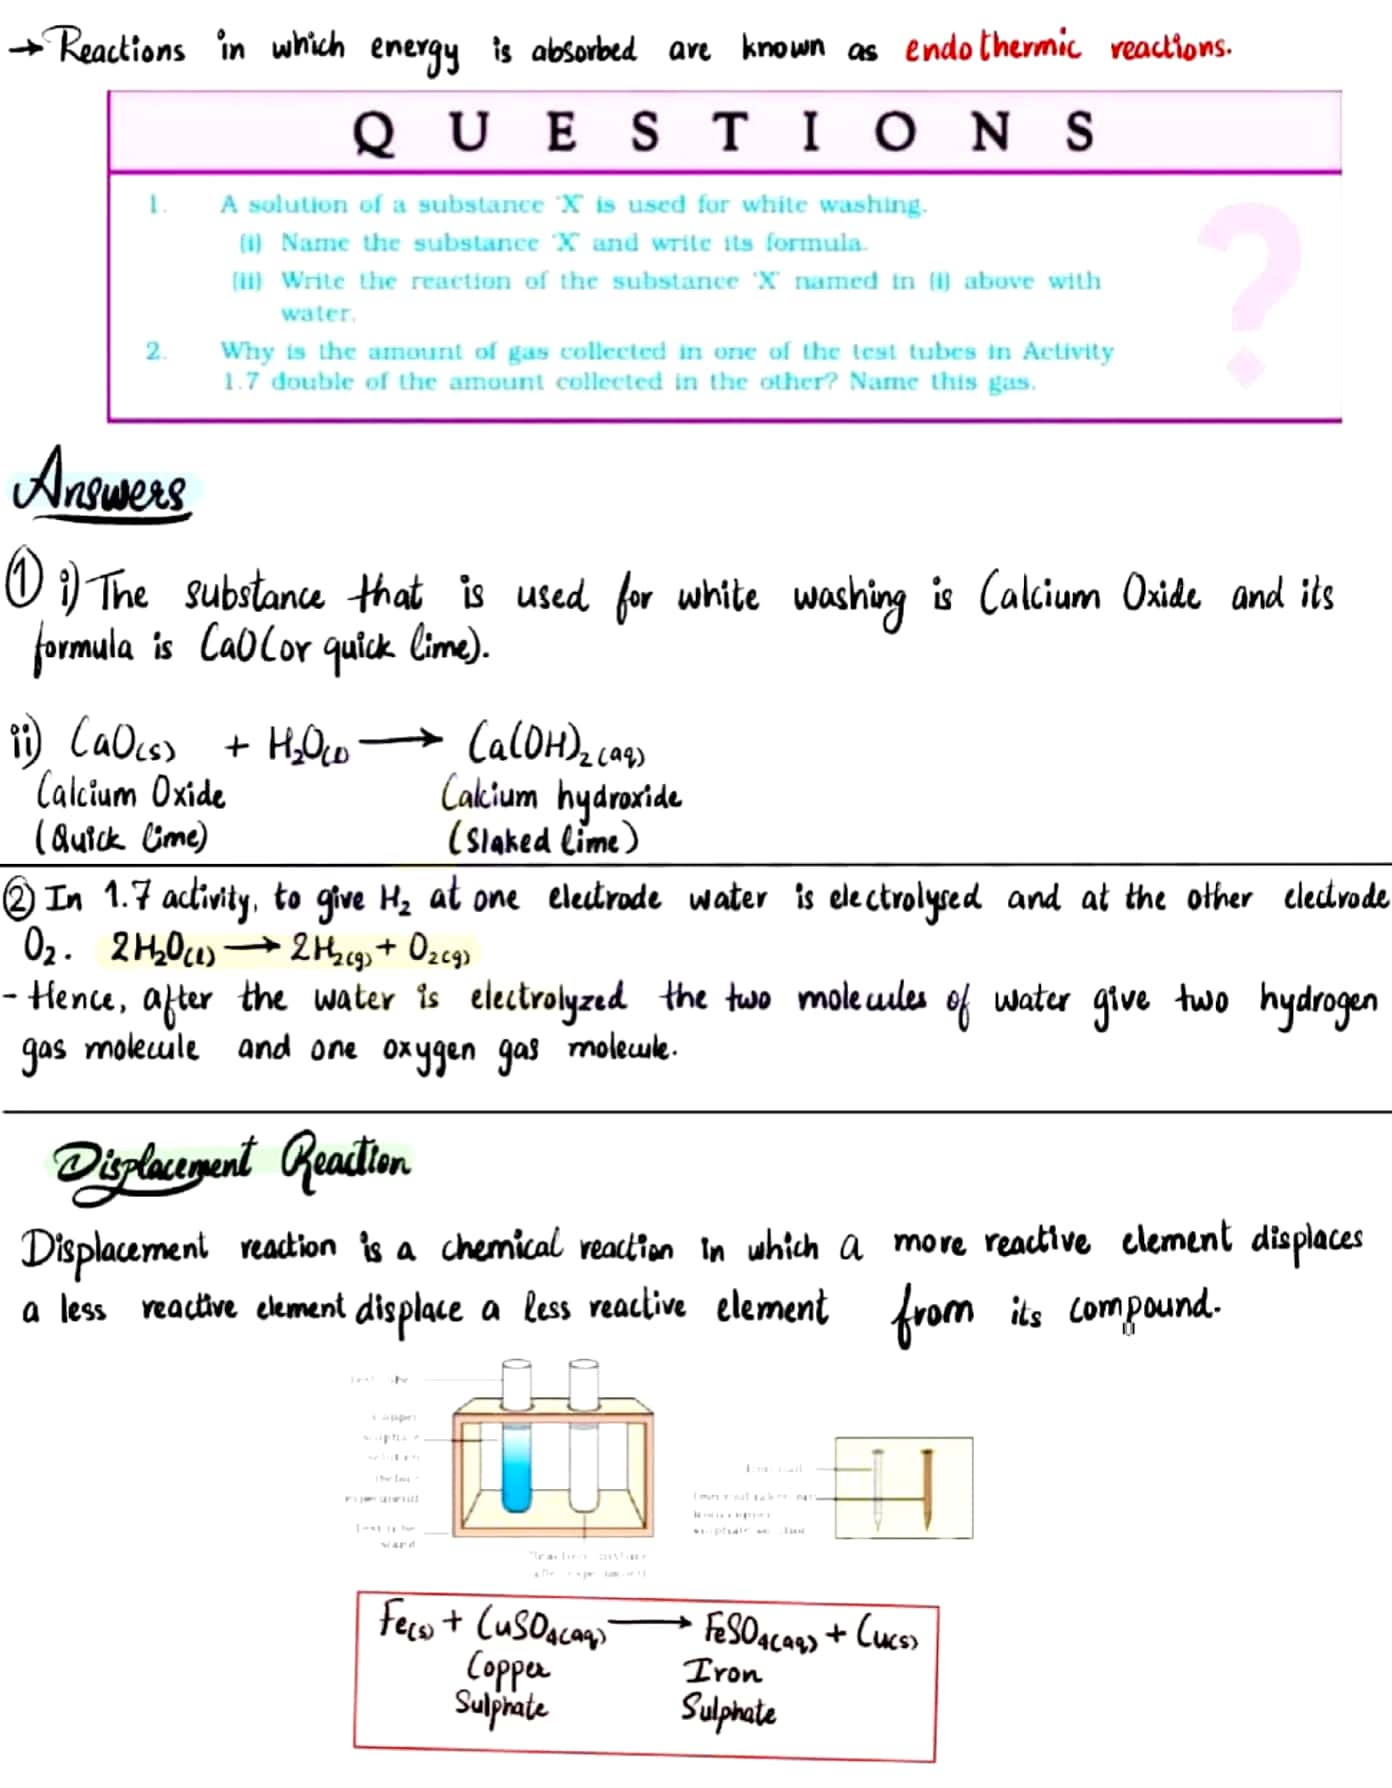 → Reactions in which energy is absorbed are known as endothermic reactions.
QUESTIONS
1. A solution of a substance 'X' is used for white washing.
(i) Name the substance 'X' and write its formula.
(ii) Write the reaction of the substance 'X' named in (i) above with
water.
2. Why is the amount of gas collected in one of the test tubes in Activity
1.7 double of the amount collected in the other? Name this gas.
Answers
① i) The substance that is used for white washing is Calcium Oxide and its
formula is CaO(or quick lime).
ii) CaO(s) + H₂O(l) ⟶ Ca(OH)₂(aq)
Calcium Oxide Calcium hydroxide
(Quick lime) (Slaked lime)
② In 1.7 activity, to give H₂ at one electrode water is electrolysed and at the other electrode
O₂. 2H₂O(l) ⟶ 2H₂(g) + O₂(g)
- Hence, after the water is electrolyzed the two molecules of water give two hydrogen
gas molecule and one oxygen gas molecule.
Displacement Reaction
Displacement reaction is a chemical reaction in which a more reactive element displaces
a less reactive element displace a less reactive element from its compound.
Fe(s) + CuSO₄(aq) ⟶ FeSO₄(aq) + Cu(s)
Copper Iron
Sulphate Sulphate